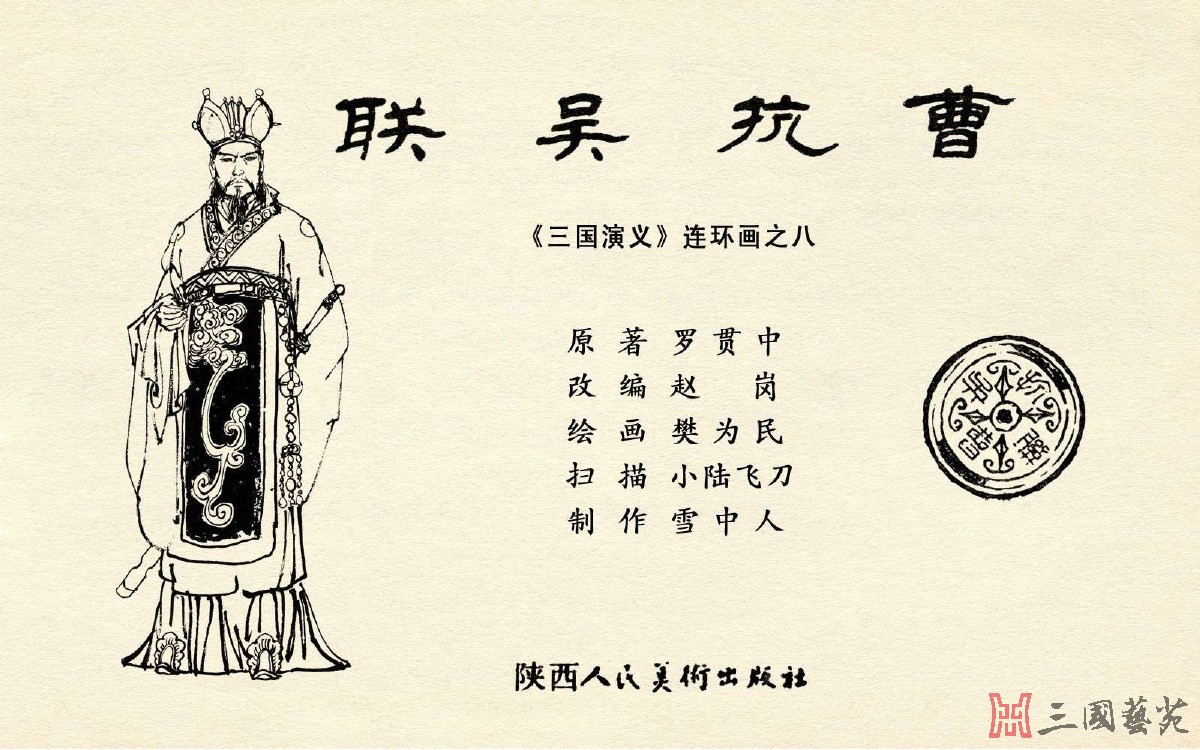 联吴抗曹
《三国演义》连环画之八
原著 罗贯中
改编 赵岗
绘画 樊为民
扫描 小陆飞刀
制作 雪中人
陕西人民美術出版社
三國藝苑